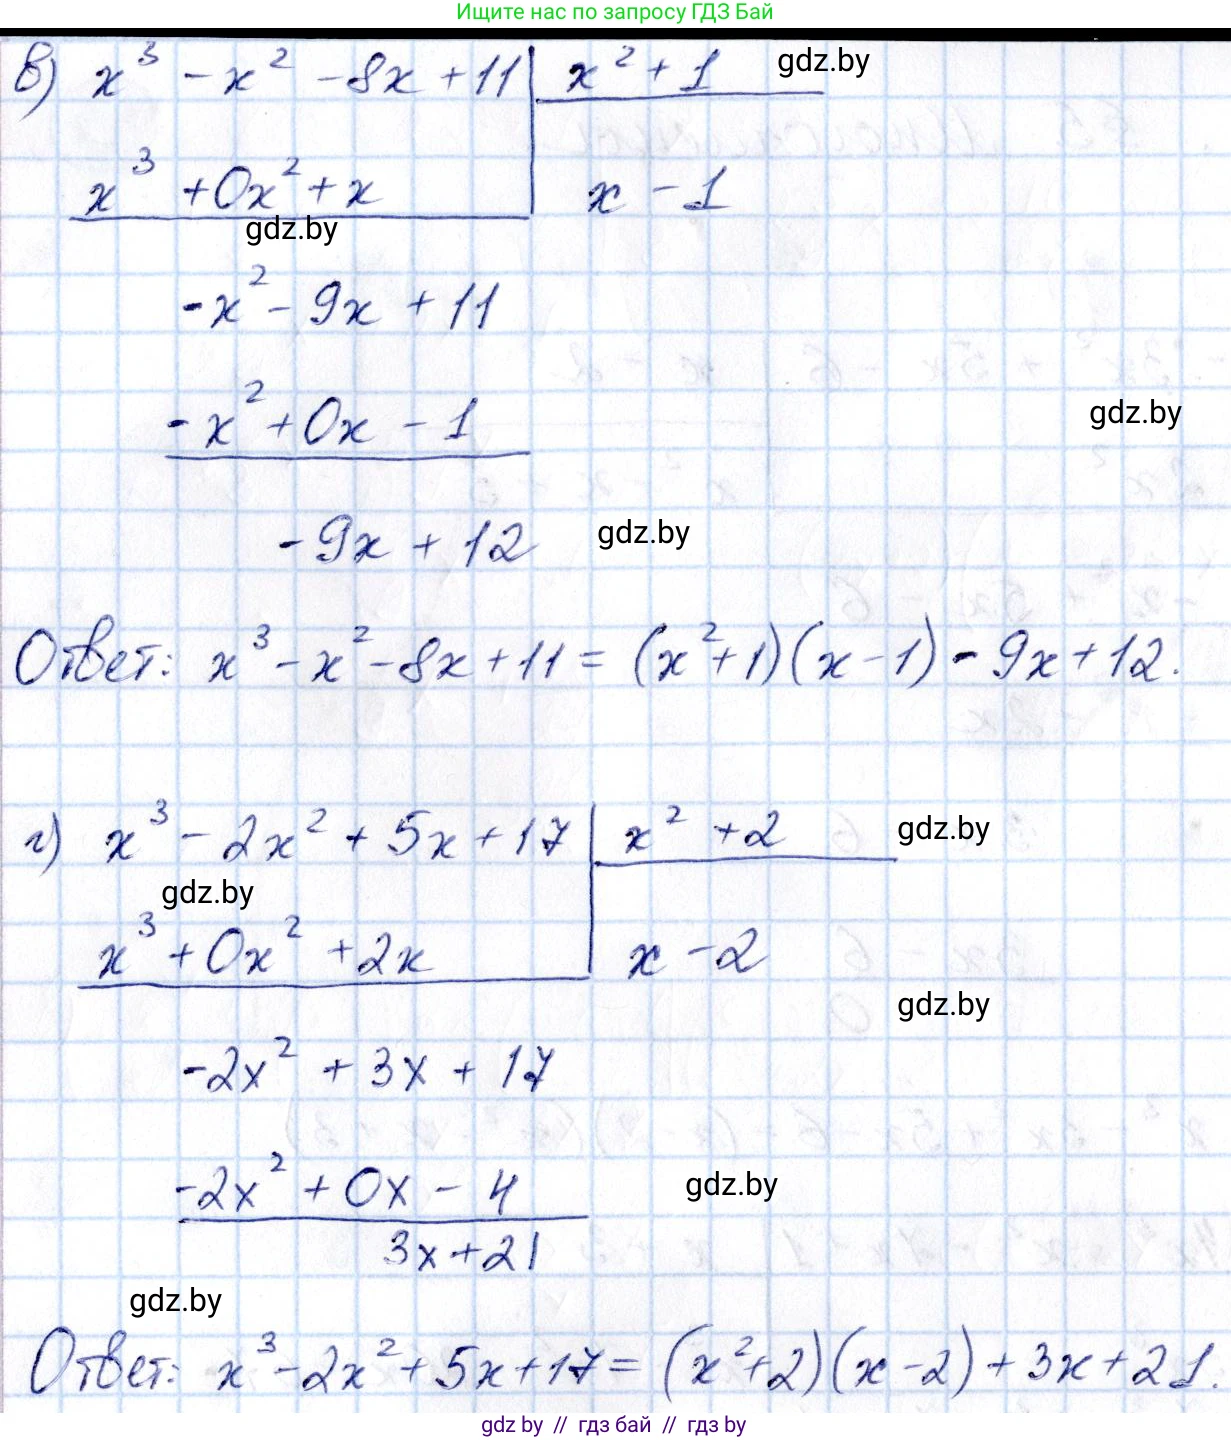 Ищите нас по запросу ГДЗ Бай
в) x³ - x² - 8x + 11 | x² + 1 gdz.by
x³ + 0x² + x | x - 1
gdz.by
-x² - 9x + 11
-x² + 0x - 1
gdz.by
-9x + 12 gdz.by
Ответ: x³ - x² - 8x + 11 = (x² + 1)(x - 1) - 9x + 12.
г) x³ - 2x² + 5x + 17 | x² + 2 gdz.by
gdz.by
x³ + 0x² + 2x | x - 2
gdz.by
-2x² + 3x + 17
-2x² + 0x - 4 gdz.by
3x + 21
gdz.by
Ответ: x³ - 2x² + 5x + 17 = (x² + 2)(x - 2) + 3x + 21.
gdz by // гдз бай // гдз by